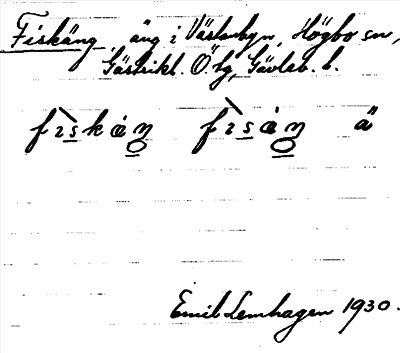 Fiskäng äng i Västerbyn, Högbo sn,
Gästrikl. Ö. tg, Gävleb. l.
fiskäŋ fisäŋ ä
Emil Lemhagen 1930.